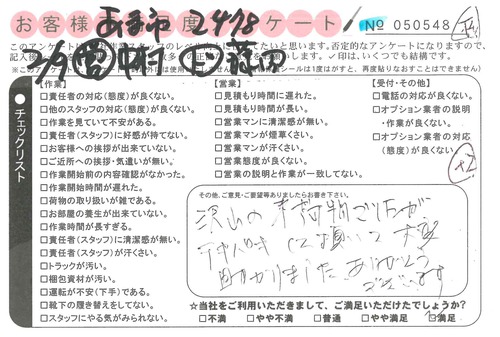 お客様 満足度 アンケート!
№ 050548
あま市 2478
【作業】
□責任者の対応(態度)が良くない。
□他のスタッフの対応(態度)が良くない。
□作業を見ていて不安がある。
□責任者(スタッフ)に好感が持てない。
□お客様への挨拶が出来ていない。
□ご近所への挨拶・気遣いが無い。
□作業開始前の内容確認がなかった。
□作業開始時間が遅れた。
□荷物の取り扱いが雑である。
□お部屋の養生が出来ていない。
□作業時間が長すぎる。
□責任者(スタッフ)に清潔感が無い。
□責任者(スタッフ)が汗くさい。
□トラックが汚い。
□梱包資材が汚い。
□運転が不安(下手)である。
□靴下の履き替えをしてない。
□スタッフにやる気がみられない。
【営業】
□営業時間に遅れた。
□見積もり時間が長い。
□営業マンに清潔感が無い。
□営業マンが煙草くさい。
□営業マンが汗くさい。
□営業態度が良くない。
□営業の説明と作業が一致してない。
【受付・その他】
□電話の対応が良くない。
□オプション業者の説明
・作業が良くない。
□オプション業者の対応
(態度)が良くない
チェックリスト
その他、ご意見・ご要望等ありましたらお書き下さい。
沢山の荷物でしたが
テキパキして頂いて大変
助かりました。ありがとう
ございます
☆当社をご利用いただきまして、ご満足いただけたでしょうか?
□不満 □やや不満 □普通 □やや満足 □満足